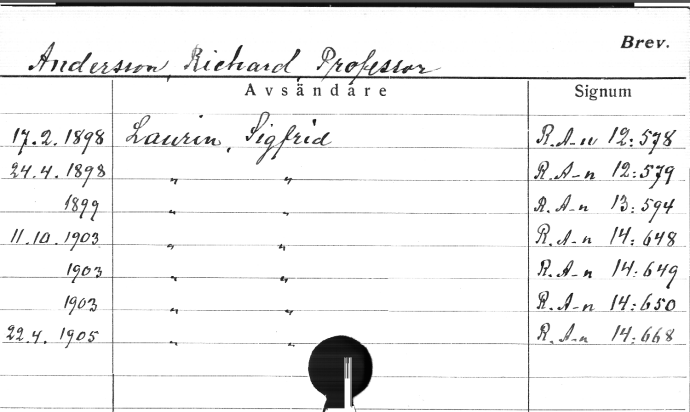 Brev.
Andersson, Richard, Professor
Avsändare Signum
17.2.1898 Laurin, Sigfrid R.A-n 12:578
24.4.1898 " " R.A-n 12:579
1899 " " R.A-n 13:594
11.10.1903 " " R.A-n 14:648
1903 " " R.A-n 14:649
1903 " " R.A-n 14:650
22.4.1905 " " R.A-n 14:668